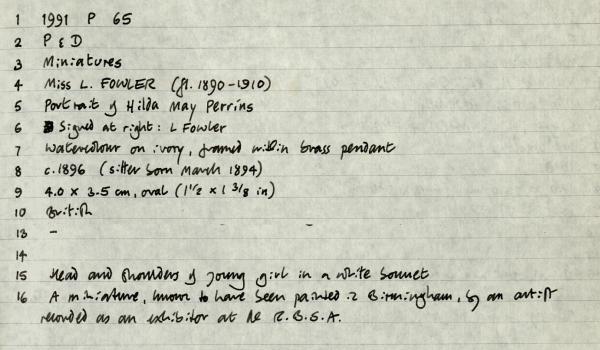 1 1991 P 65
2 P & D
3 Miniatures
4 Miss L. FOWLER (fl. 1890-1910)
5 Portrait of Hilda May Perrins
6 Signed at right: L Fowler
7 Watercolour on ivory, framed within brass pendant
8 c.1896 (sitter born March 1894)
9 4.0 x 3.5 cm, oval (1 1/2 x 1 3/8 in)
10 British
13 -
14
15 Head and shoulders of young girl in a white bonnet
16 A miniature, known to have been painted in Birmingham, by an artist
recorded as an exhibitor at the R.B.S.A.